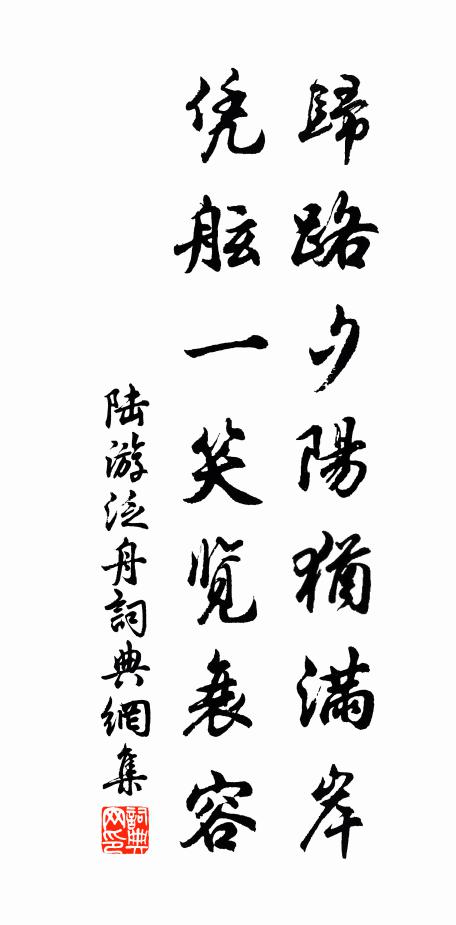 歸路夕陽猶滿岸
凭舷一笑覽衰容
陸游泛舟詞典網集
詞典網印